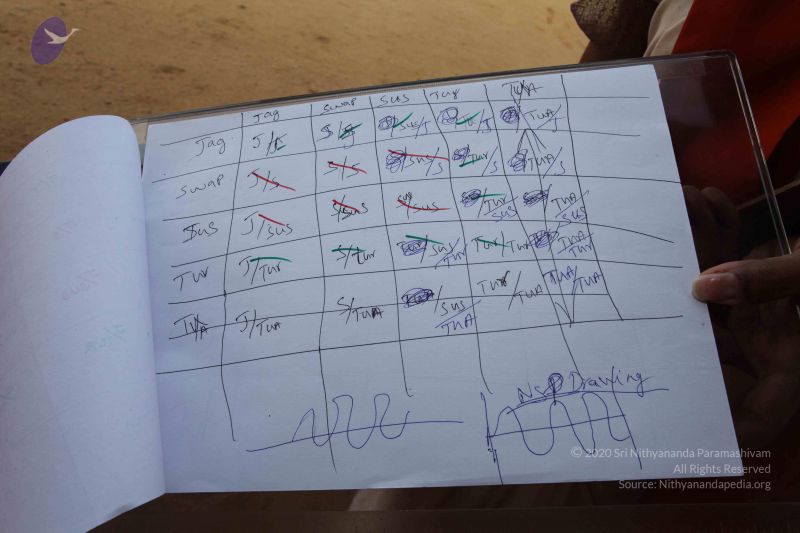 Jag Swap Sus Tur TuA
Jag J/ S/ Sus/J /J TuA/J
Swap J/S S/S Sus/S Tur/S TuA/S
Sus J/Sus S/Sus Sus Tur/Sus TuA/Sus
Tur J/Tur S/Tur Sus/Tur Tur/Tur TuA/Tur
TuA J/TuA S/TuA Sus/TuA Tur/TuA TuA/TuA
NSP Drawing
© 2020 Sri Nithyananda Paramashivam
All Rights Reserved
Source: Nithyanandapedia.org